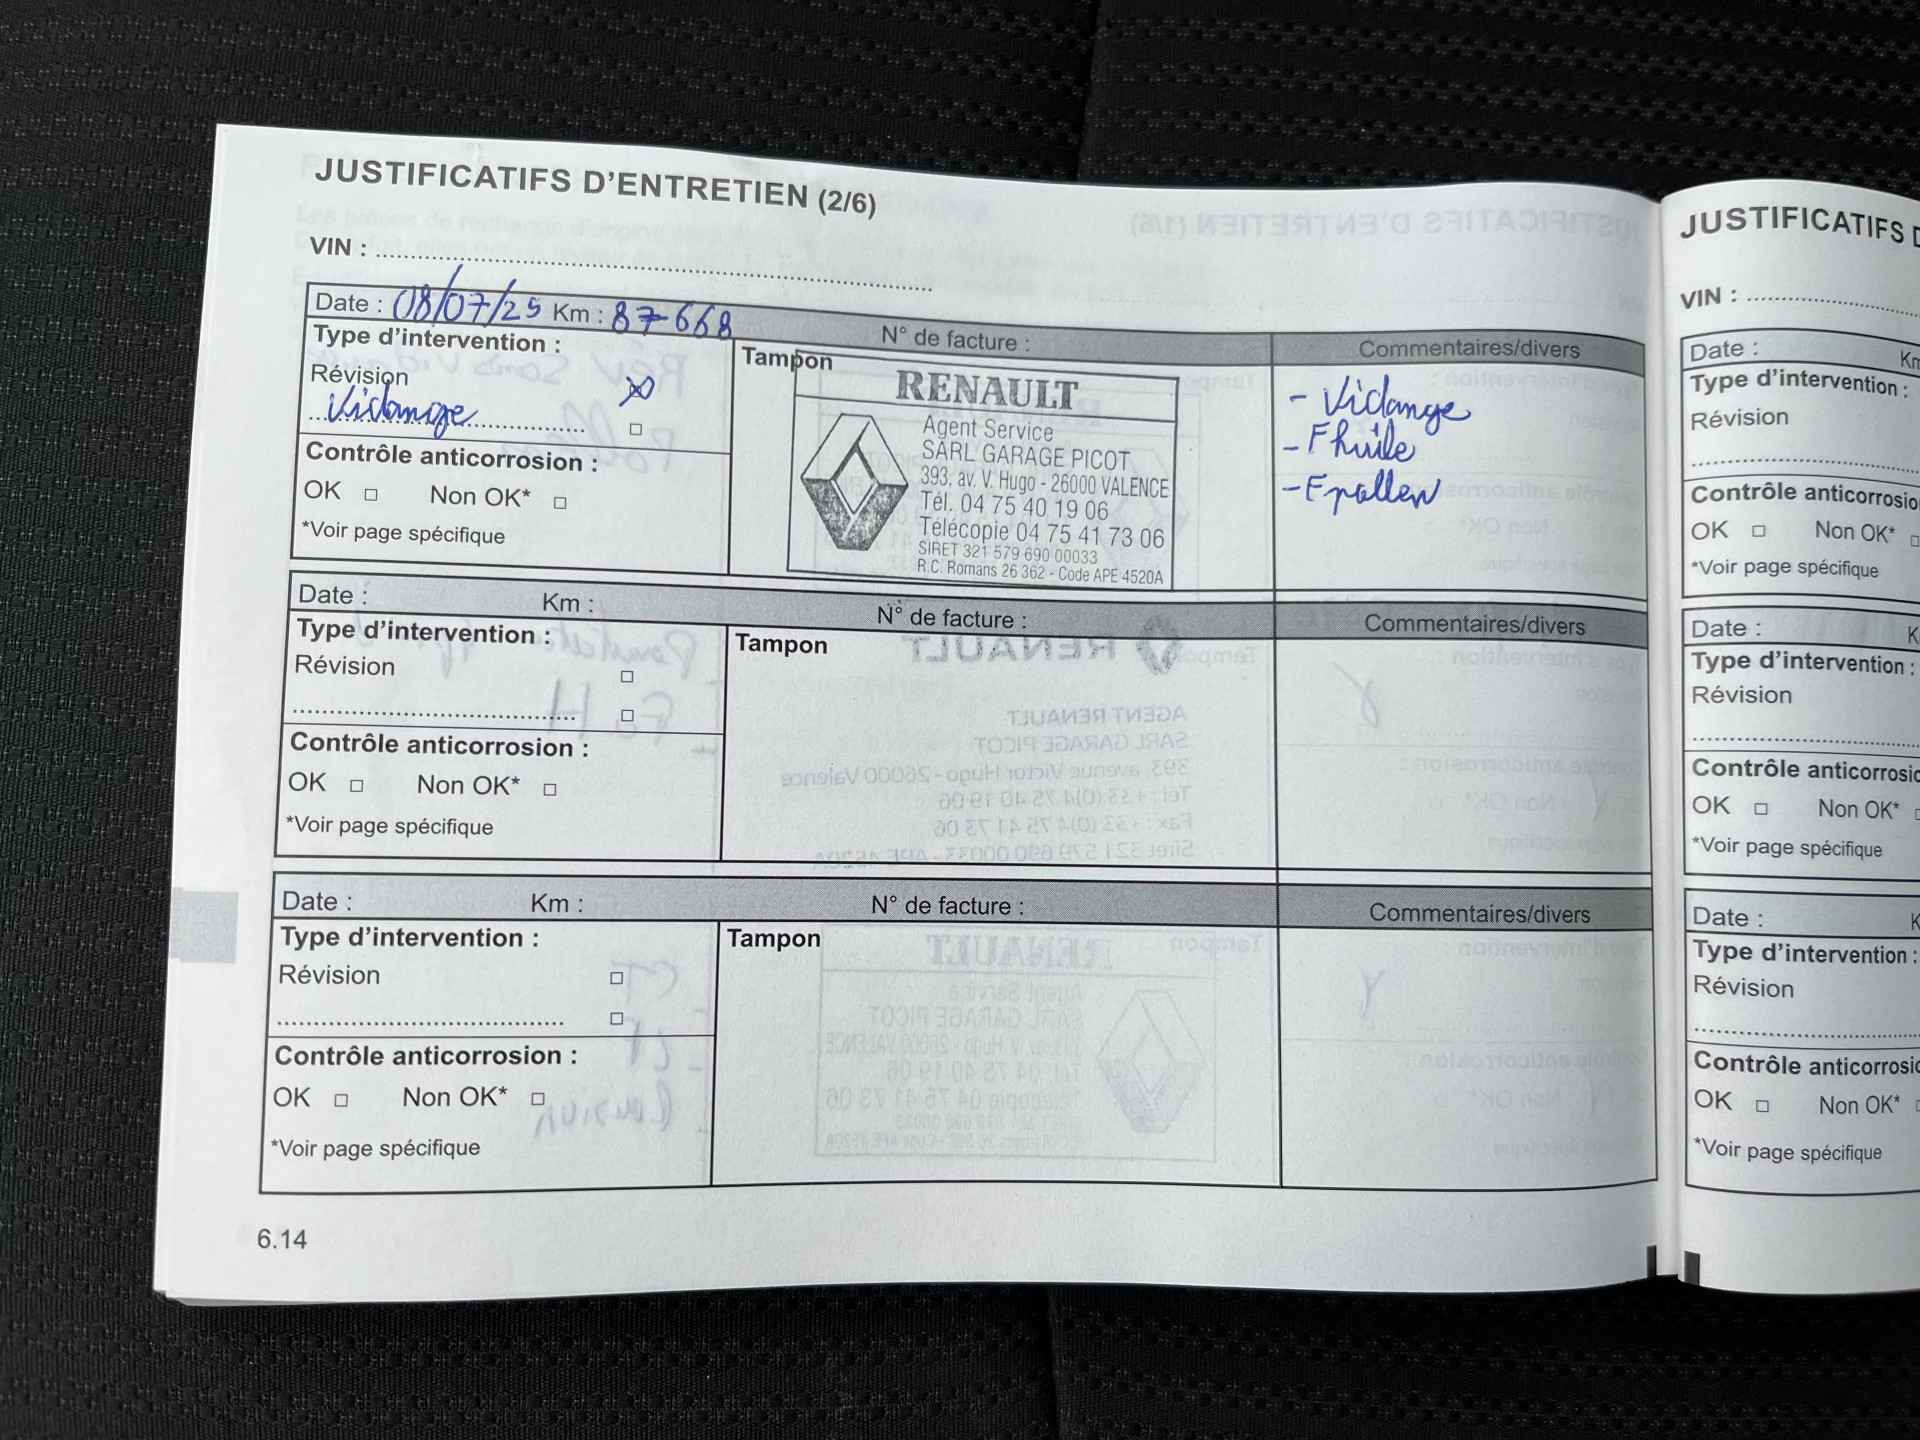 JUSTIFICATIFS D'ENTRETIEN (2/6)
VIN :
Date : 08/07/25 Km : 87668 N° de facture : Commentaires/divers
Type d'intervention :
Révision
Vidange
Contrôle anticorrosion :
OK Non OK*
*Voir page spécifique
Tampon
RENAULT
Agent Service
SARL GARAGE PICOT
393, av. V. Hugo - 26000 VALENCE
Tél. 04 75 40 19 06
Télécopie 04 75 41 73 06
SIRET 321 579 690 00033
R.C. Romans 26 362 - Code APE 4520A
- Vidange
- F huile
- F pollen
Date : Km : N° de facture : Commentaires/divers
Type d'intervention :
Révision
Contrôle anticorrosion :
OK Non OK*
*Voir page spécifique
Tampon
Date : Km : N° de facture : Commentaires/divers
Type d'intervention :
Révision
Contrôle anticorrosion :
OK Non OK*
*Voir page spécifique
Tampon
6.14
JUSTIFICATIFS D
VIN :
Date : Km
Type d'intervention :
Révision
Contrôle anticorrosio
OK Non OK*
*Voir page spécifique
Date : K
Type d'intervention :
Révision
Contrôle anticorrosic
OK Non OK*
*Voir page spécifique
Date : K
Type d'intervention :
Révision
Contrôle anticorrosic
OK Non OK*
*Voir page spécifique